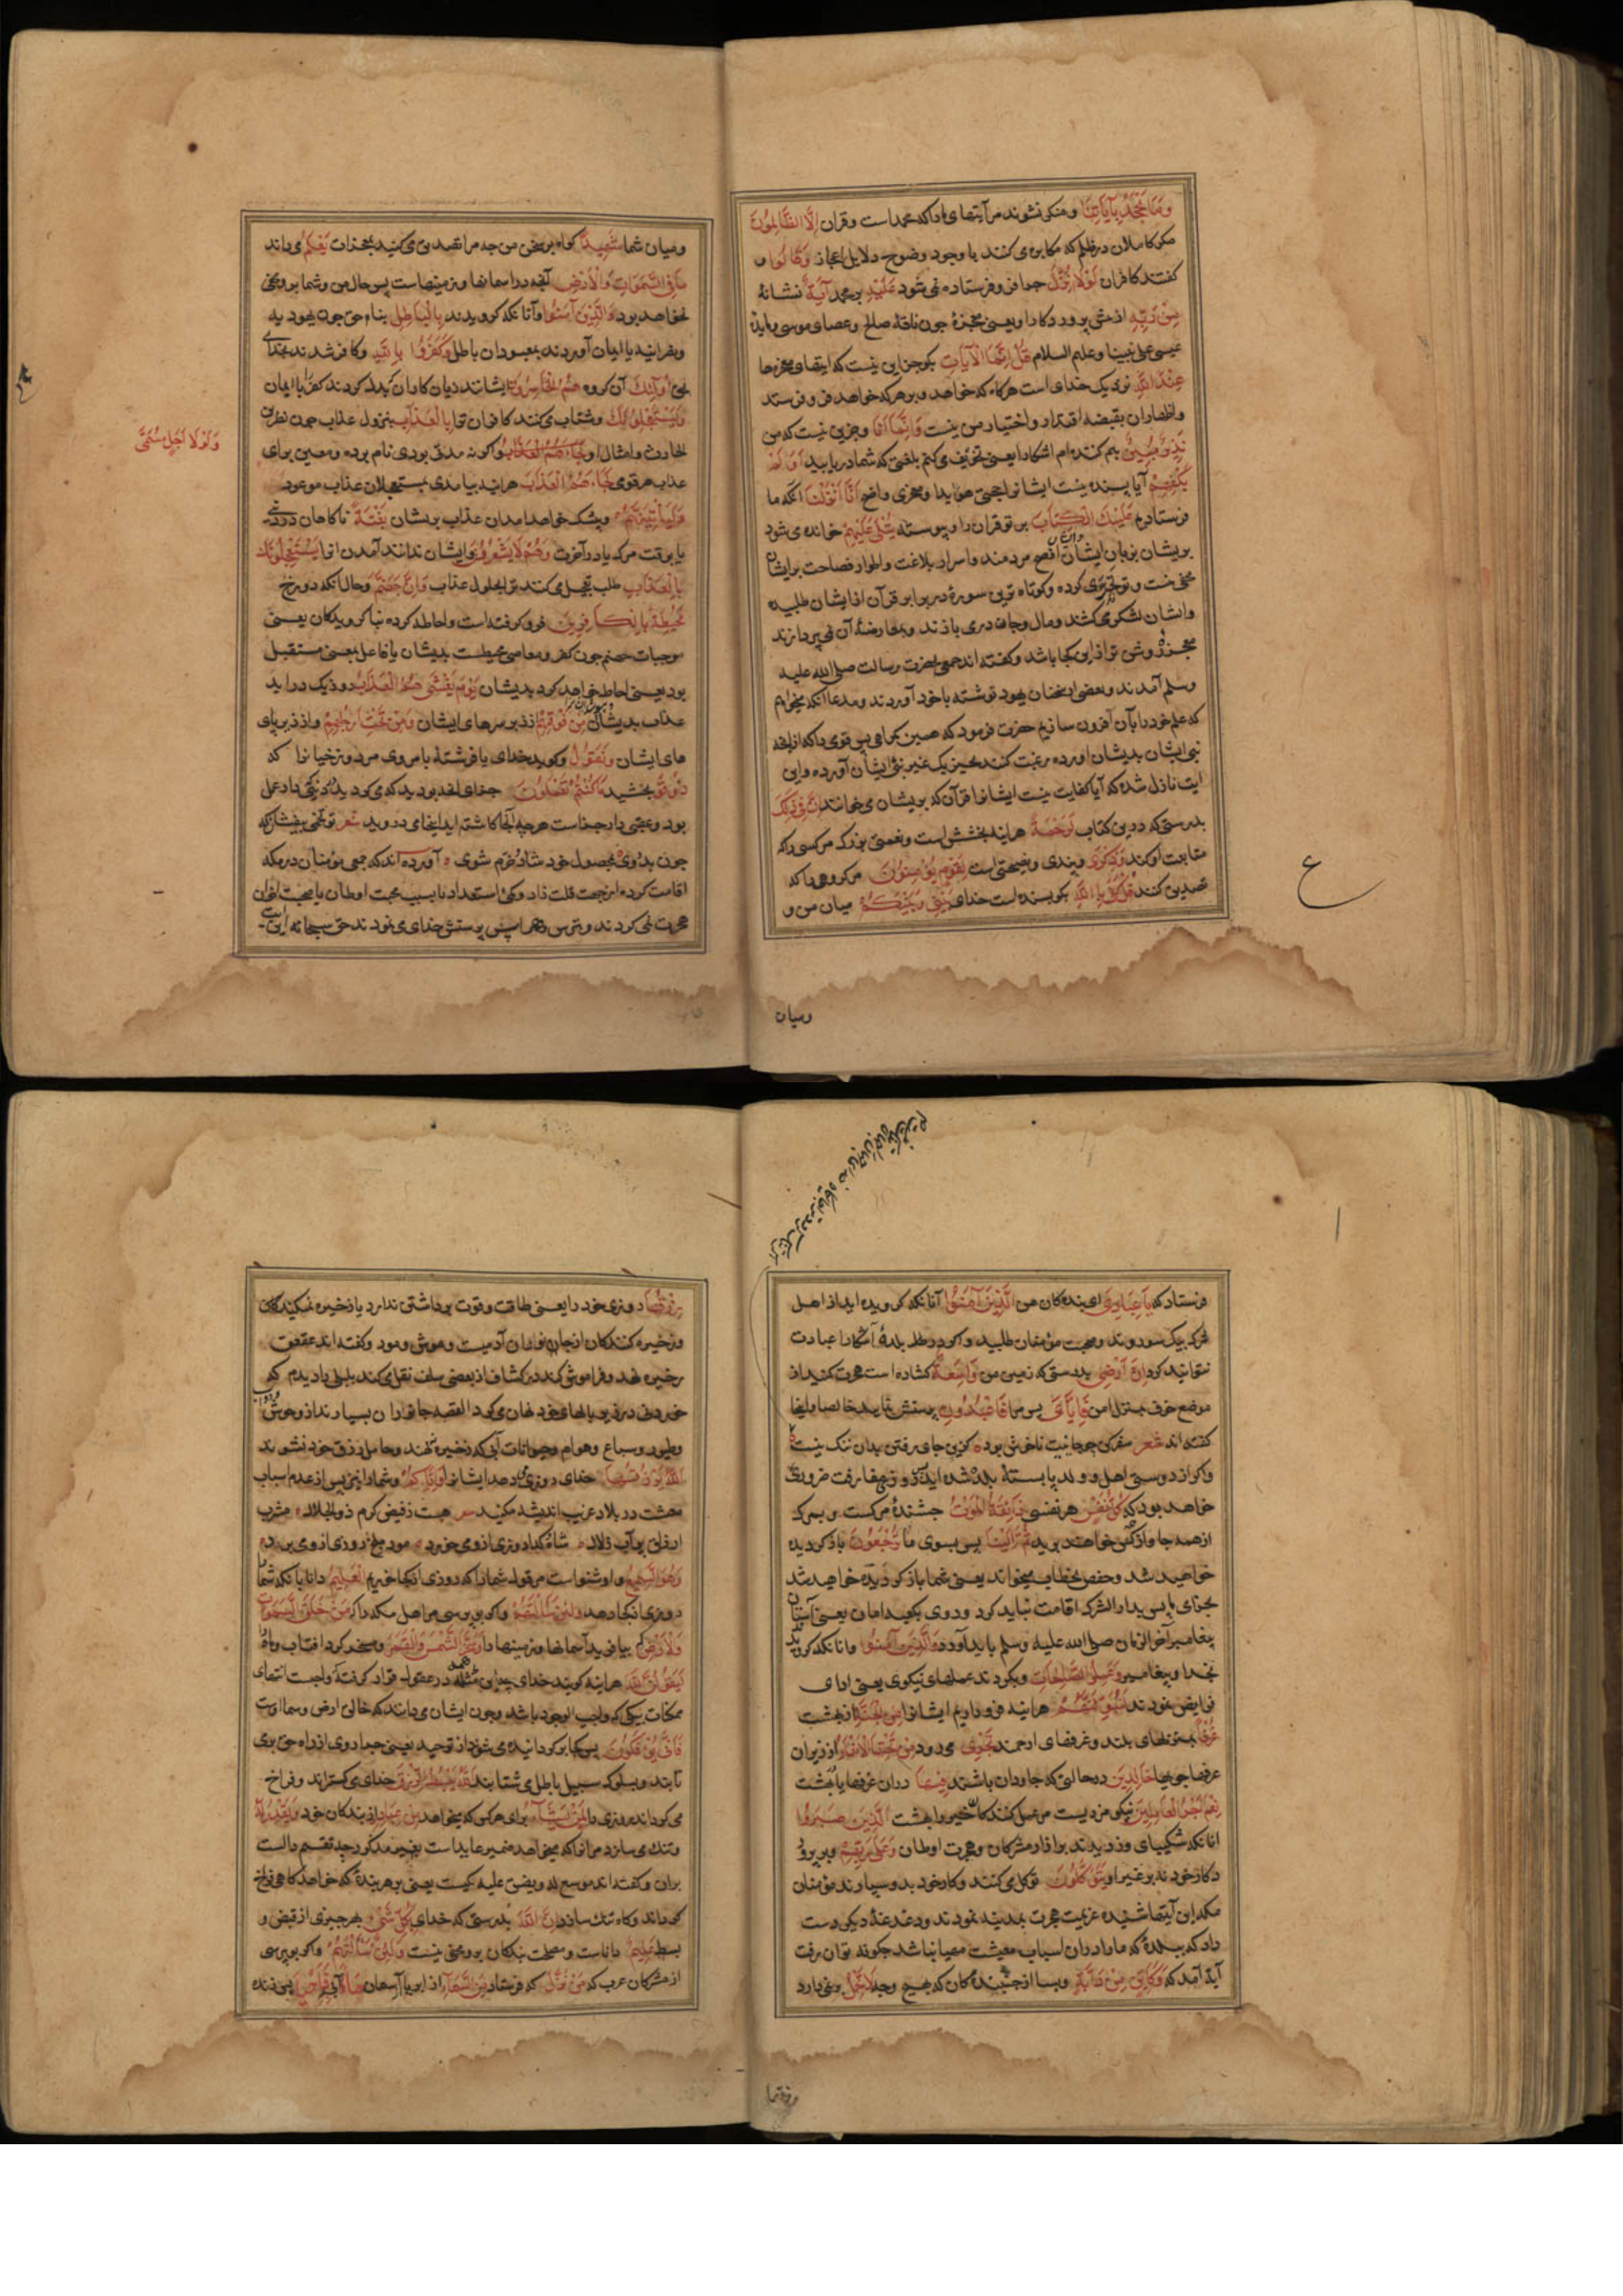 وَمَا يَجْحَدُ بِآيَاتِنَا ومنکر نشوند مر آیتهای ما را که محمد است وقران اِلَّا الظَّالِمُونَ
مکر کاملان در ظلم که مکابره می کنند با وجود وضوح دلایل اعجاز وَقَالُوا و
کفتند کافران لَوْلَا اُنْزِلَ چرا فرو فرستاده نمی شود عَلَيْهِ بر محمد آيَةٌ نشانهٔ
مِنْ رَبِّهِ از پروردکار او یعنی معجزهٔ چون ناقهٔ صالح وعصای موسی ومایدهٔ
عیسی علی نبینا وعلیهم السلام قُلْ اِنَّمَا الْآيَاتُ بکو جز این نیست که ایتهای معجزها
عِنْدَ اللهِ نزدیک خدای است هرکاه که خواهد وبر هرکه خواهد فرو فرستد
واظهار ان بقبضه اقتدار واختیار من نیست وَاِنَّمَا اَنَا وجز این نیست که من
نَذِيرٌ مُبِينٌ بیم کننده ام اشکارا یعنی تخویف می کنم بلغتی که شما دریابید اَوَلَمْ
يَكْفِهِمْ آیا بسنده نیست ایشانرا حجتی هویدا ومعجزی واضح اَنَّا اَنْزَلْنَا انکه ما
فرستادیم عَلَيْكَ الْكِتَابَ بر تو قران را وپیوسته يُتْلَى عَلَيْهِمْ خوانده می شود
بریشان بزبان ایشان وایشان افصح مردمند واسرار بلاغت واطوار فصاحت برایشان
مخفی نیست وتو تحدی کرده وکوتاه ترین سورهٔ در برابر قرآن از ایشان طلبیده
وایشان لشکر می کشند ومال وجان در می بازند وبمعارضهٔ آن نمی پردازند
معجزهٔ روشن تر از این کجا باشد وکفته اند جمعی بحضرت رسالت صلی الله علیه
وسلم آمدند وبعضی از سخنان یهود نوشته با خود آوردند ومدعا آنکه میخواهیم
که علم خود را بآن افزون سازیم حضرت فرمود که همین کمراهی بس قومی را که از آنچه
نبی ایشان بدیشان اورده رغبت کنند بچیزیکه غیر نبی ایشان آورده واین
ایت نازل شد که آیا کفایت نیست ایشانرا قرآن که بریشان می خوانند اِنَّ فِي ذٰلِكَ
بدرستی که در این کتاب لَرَحْمَةً هراینه بخشش است ونعمتی بزرک مر کسی را که
متابعت او کند وَذِكْرَى وپندی ونصیحتی است لِقَوْمٍ يُؤْمِنُونَ مر کروهی را که
تصدیق کنند قُلْ كَفَى بِاللهِ بکو بسنده است خدای بَيْنِي وَبَيْنَكُمْ میان من و
ومیان
ومیان شما شَهِيدًا کواه بر سخن من چه مرا تصدیق می کنید بمعجزات يَعْلَمُ می داند
مَا فِي السَّمٰوَاتِ وَالْاَرْضِ آنچه در اسمانها وزمینهاست پس حال من وشما برو مخفی
نخواهد بود وَالَّذِينَ آمَنُوا وآنانکه کرویدند بِالْبَاطِلِ بناء حق چون یهود به
ونصرانیه یا ایمان آوردند بمعبودان باطل وَكَفَرُوا بِاللهِ وکافر شدند بخدای
بحق اُولٰئِكَ آن کروه هُمُ الْخَاسِرُونَ ایشانند زیان کاران که بدل کردند کفر را بایمان
وَيَسْتَعْجِلُونَكَ وشتاب می کنند کافران ترا بِالْعَذَابِ بنزول عذاب چون نضر بن
الحارث وامثال او واکر نه مدتی بودی نام برده ومعین برای
عذاب هر قومی لَجَاءَهُمُ الْعَذَابُ هراینه بیامدی بمستعجلان عذاب موعود
وَلَيَأْتِيَنَّهُمْ وبیشک خواهد امدان عذاب بریشان بَغْتَةً ناکاهان در دنیی
یا بوقت مرک یا در آخرت وَهُمْ لَا يَشْعُرُونَ وایشان ندانند آمدن انرا يَسْتَعْجِلُونَكَ
بِالْعَذَابِ طلب تعجیل می کنند ترا بحلول عذاب وَاِنَّ جَهَنَّمَ وحال انکه دوزخ
لَمُحِيطَةٌ بِالْكَافِرِينَ فرو کرفته است واحاطه کرده بنا کرویدکان یعنی
موجبات جهنم چون کفر ومعاصی محیطست بدیشان یا فاعل بمعنی مستقبل
بود یعنی احاطه خواهد کرد بدیشان يَوْمَ يَغْشٰيهُمُ الْعَذَابُ روزیکه دراید
عذاب بدیشان مِنْ فَوْقِهِمْ از زبر سرهای ایشان وَمِنْ تَحْتِ اَرْجُلِهِمْ واز زیر پای
های ایشان وَنَقُولُ وکوید خدای یا فرشتهٔ بامر وی مر دوزخیانرا که
ذُوقُوا بچشید مَا كُنْتُمْ تَعْمَلُونَ جزای انچه بودید که می کردید
بود وعقبی دار جزاست هرچه آنجا کاشته اید اینجا می دروید شعر تو تخمی بیفشان که
چون بدروی ز محصول خود شاد وخرم شوی آورده اند که جمعی مؤمنان در مکه
اقامت کرده از جهت قلت زاد وکمی استعداد یا بسبب محبت اوطان یا صحبت اخوان
هجرت نمی کردند وبترس وهراس پرستش خدای می نمودند حق سبحانه این آیت
وَلَوْلَا اَجَلٌ مُسَمًّى
ع
فرستاد که يَا عِبَادِيَ ای بندکان من الَّذِينَ آمَنُوا آنانکه کرویده اید از اهل
شرک بیک سو روید وصحبت مؤمنان طلبید واکر در بلدهٔ آشکارا عبادت
نتوانید کرد اِنَّ اَرْضِي بدرستی که زمین من وَاسِعَةٌ کشاده است هجرت کنید از
موضع خوف بمنزل امن فَاِيَّايَ پس مرا فَاعْبُدُونِ پرستش نمایید خالصا واینجا
کفته اند شعر سفر کن چو جایت ناخوش بود کزین جای رفتن بدان ننک نیست
واکر از دوستی اهل وولد پا بستهٔ بلده شده اید روزی مفارقت ضروری
خواهد بود که كُلُّ نَفْسٍ هر نفسی ذَائِقَةُ الْمَوْتِ چشندهٔ مرکست
از همه جا واز همه کس خواهند برید ثُمَّ اِلَيْنَا پس بسوی ما تُرْجَعُونَ باز کردیده
خواهید شد وحفص بخطاب میخواند یعنی شما باز کردیده خواهید شد
بجزای پس بدار الشرک اقامت نباید کرد وروی بکعبهٔ امان یعنی آستان
پیغامبر آخر الزمان صلی الله علیه وسلم باید آورد وَالَّذِينَ آمَنُوا وانانکه کرویدند
بخدا وپیغامبر وَعَمِلُوا الصَّالِحَاتِ وبکردند عملهای نیکوی یعنی ادای
فرایض نمودند لَنُبَوِّئَنَّهُمْ هراینه فرود اریم ایشانرا مِنَ الْجَنَّةِ از بهشت
غُرَفًا بمنزلهای بلند وغرفهای ارجمند تَجْرِي می رود مِنْ تَحْتِهَا الْاَنْهَارُ از زیر ان
غرفها جویها خَالِدِينَ در حالتی که جاودان باشند فِيهَا دران غرفها یا بهشت
نِعْمَ اَجْرُ الْعَامِلِينَ نیکو مزدیست مر عمل کنندکان خیر را بهشت الَّذِينَ صَبَرُوا
انانکه شکیبایی ورزیدند بر آزار مشرکان وهجرت اوطان وَعَلَى رَبِّهِمْ وبر پروردکار
خود نه بر غیر او يَتَوَكَّلُونَ توکل می کنند وکار خود بدو سپارند مؤمنان
مکه این آیتها شنیده عزیمت هجرت بمدینه نمودند ودغدغهٔ دیکر دست
داد که ببلدهٔ که ما را دران اسباب معیشت مهیا نباشد چکونه توان رفت
آیة آمد که وَكَاَيِّنْ مِنْ دَابَّةٍ وبسا از جنبندهٔ کان که بهیچ وجه لَا تَحْمِلُ بر نمی دارد
رِزْقَهَا روزی خود را یعنی طاقت وقوت برداشتن ندارد یا ذخیره نمیکند کان
وذخیره کنندکان از جانوران آدمیست وموش ومور وکفته اند عقعق
ذخیره نهد وفراموش کند در کشاف از بعضی سلف نقل می کند بلبلی را دیدم که
خوردنی در زیر بالهای خود نهان می کرد القصه جانوران بسیارند از وحوش
وطیور وسباع وهوام وحیوانات آبی که ذخیره ننهند وحامل رزق خود نشوند
اَللهُ يَرْزُقُهَا خدای روزی می دهد ایشانرا وَاِيَّاكُمْ وشما را نیز پس از عدم اسباب
معیشت در بلاد غربت اندیشه مکنید شعر هست ز فیض کرم ذو الجلال مشرب
ارزاق پر آب زلال شاه وکدا روزی ازو می خورند مور وملخ روزی ازو می برند
وَهُوَ السَّمِيعُ واو شنواست مر قول شما را که روزی از کجا خوریم الْعَلِيمُ دانا بانکه شما را
روزی از کجا دهد وَلَئِنْ سَاَلْتَهُمْ واکر بپرسی مر اهل مکه را که مَنْ خَلَقَ السَّمٰوَاتِ
وَالْاَرْضَ که بیافرید آسمانها وزمینها را وَسَخَّرَ الشَّمْسَ وَالْقَمَرَ ومسخر کرد افتاب وماه را
لَيَقُولُنَّ اللهُ هراینه کویند خدای چه این همه در عقول قرار کرفته واجبست انتهای
ممکنات بیکی که واجب الوجود باشد وچون ایشان می دانند که خالق ارض وسما اوست
فَاَنَّى يُؤْفَكُونَ پس کجا برکردانیده می شوند از توحید یعنی چرا روی از راه حق بر می
تابند وبسلوک سبیل باطل می شتابند اَللهُ يَبْسُطُ الرِّزْقَ خدای می کستراند وفراخ
می کرداند روزی را لِمَنْ يَشَاءُ برای هرکس که میخواهد مِنْ عِبَادِهِ از بندکان خود وَيَقْدِرُ لَهُ
وتنک می سازد مر انرا که میخواهد ضمیر عایداست بغیر مذکور چه تقسیم دالست
بران وکفته اند موسع له ومضیق علیه یکیست یعنی بر هر بندهٔ که خواهد کاهی فراخ
کرداند وکاه تنک سازد اِنَّ اللهَ بدرستی که خدای بِكُلِّ شَيْءٍ بهر چیزی از قبض و
بسط عَلِيمٌ داناست ومصلحت بندکان برو مخفی نیست وَلَئِنْ سَاَلْتَهُمْ واکر بپرسی
از مشرکان عرب که مَنْ نَزَّلَ که فرستاد مِنَ السَّمَاءِ از ابر یا آسمان مَاءً آبی فَاَحْيَا پس زنده